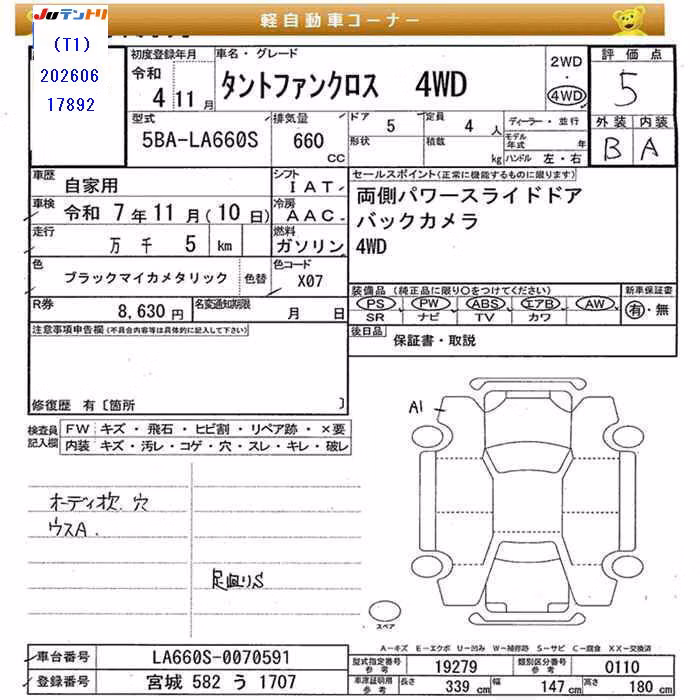 Juテントリ
軽自動車コーナー
(T1)
202606
17892
初度登録年月
令和
4 11 月
車名・グレード
タントファンクロス 4WD
2WD
・
4WD
評 価 点
5
外 装 内 装
B A
型式
5BA-LA660S
排気量
660
CC
ドア
5
定員
4 人
形状
積載
kg
ディーラー・並行
モデル年式 年
ハンドル 左・右
車歴
自家用
シフト
I A T
セールスポイント(正常に機能するものに限ります)
両側パワースライドドア
バックカメラ
4WD
車検
令和 7 年 11 月 ( 10 日 )
冷房
A A C
走行
万 千 5 km
燃料
ガソリン
色
ブラックマイカメタリック
色替
色コード
X07
装備品 (純正品に限り○をつけてください)
PS PW ABS エアB AW
SR ナビ TV カワ
新車保証書
有・無
R券
8,630 円
名変通知期限
月 日
後日品
保証書・取説
注意事項申告欄(不具合内容等は具体的に記入して下さい)
修復歴 有〔箇所 〕
検査員
記入欄
FW キズ ・ 飛石 ・ ヒビ割 ・ リペア跡 ・ ×要
内装 キズ・汚レ・コゲ・穴・スレ・キレ・破レ
A1
オーディオ 穴
ウスA.
足廻りS
スペア
A-キズ E-エクボ U-凹み W-補修跡 S-サビ C-腐食 XX-交換済
車台番号
LA660S-0070591
型式指定番号
参考
19279
類別区分番号
参考
0110
登録番号
宮城 582 う 1707
車庫証明用
参考
長さ 339 cm
幅 147 cm
高さ 180 cm